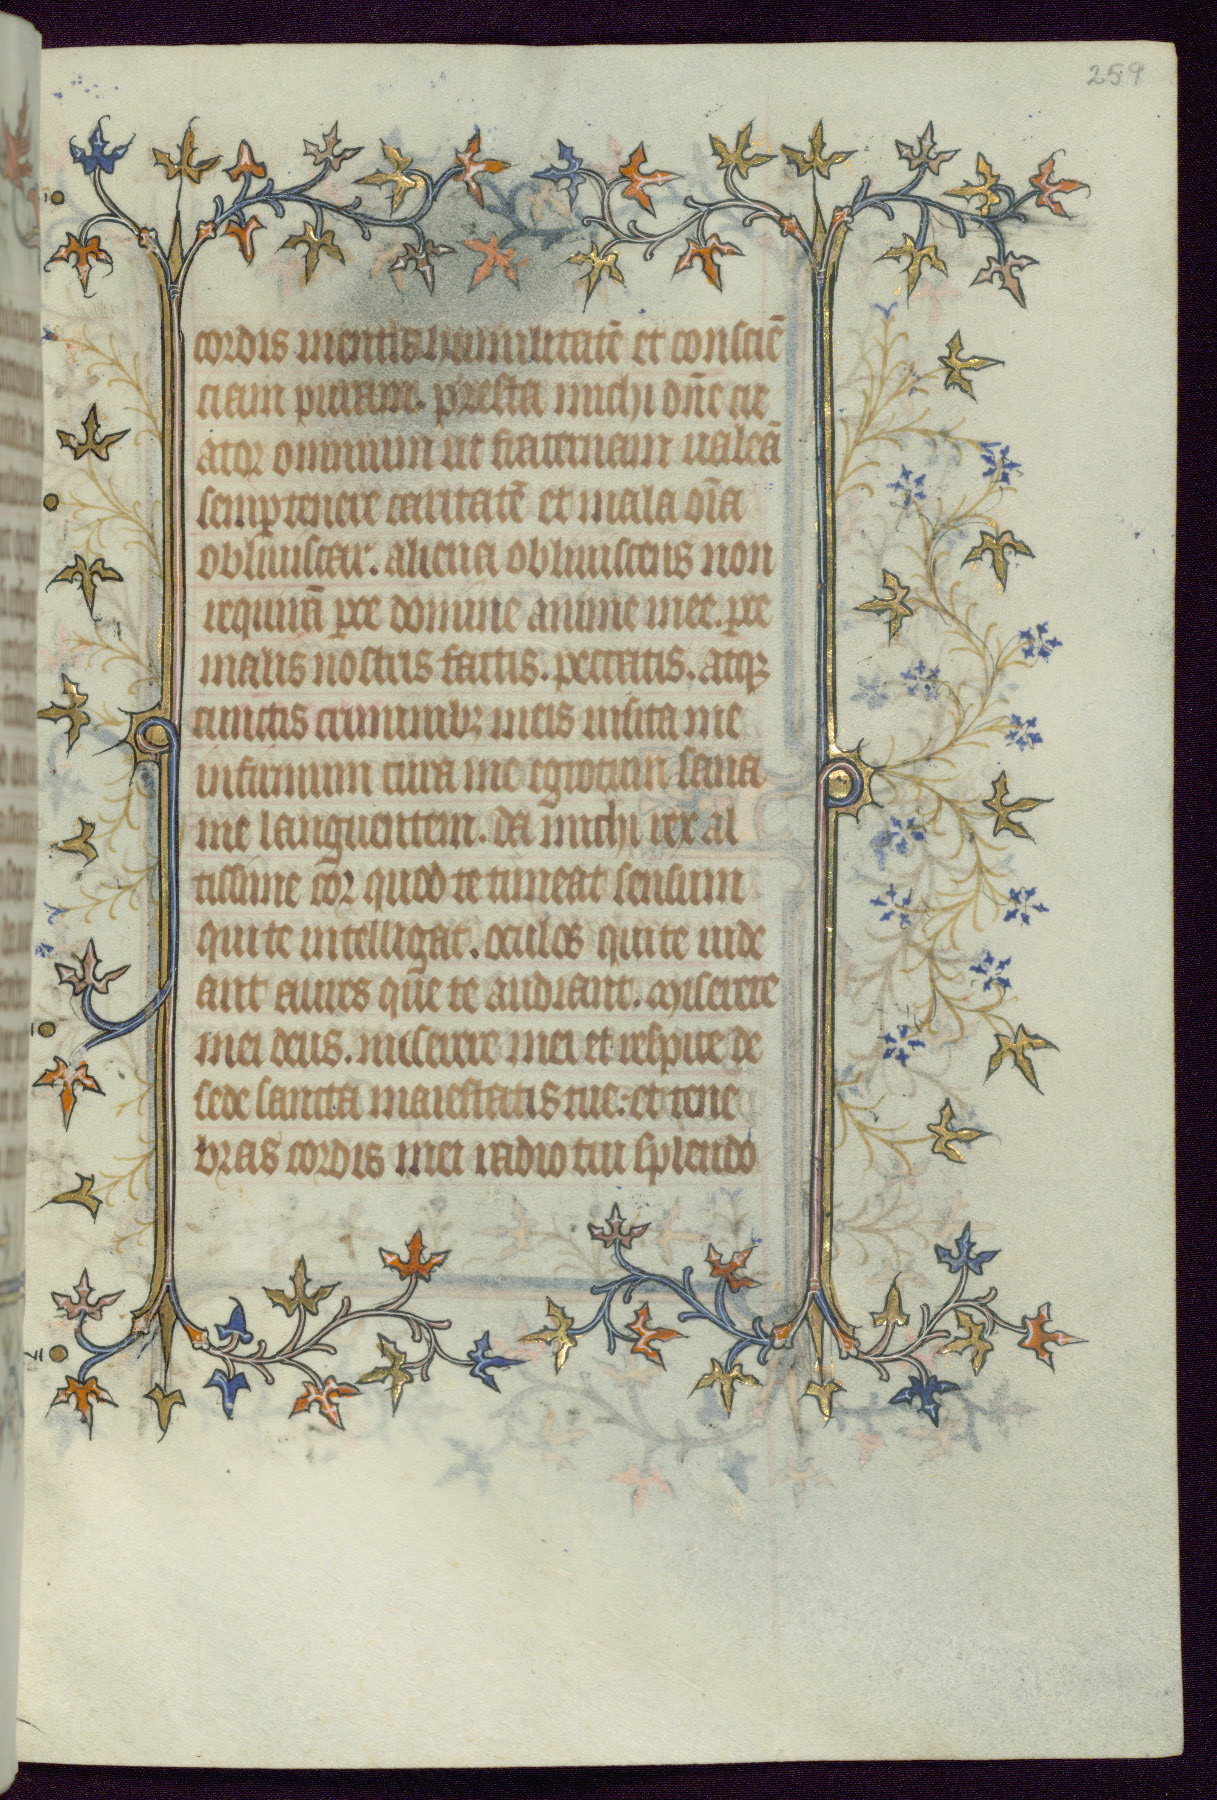 259
cordis mentis humilitatē et consciē
ciam puram. presta michi dn̄e cre
ator omnium ut fraternam ualeā
semꝑ tenere caritatē et mala om̄ia
obliuiscar. aliena obliuiscens non
requirā pce domine anime mee. pce
malis nostris factis. peccatis. atqꝫ
cunctis criminibꝫ meis uisita me
infirmum cura me egrotum sana
me languentem. da michi rex al
tissime cor quod te timeat sensum
qui te intelligat. oculos qui te uide
ant aures que te audiant. Miserere
mei deus. miserere mei et respice de
sede sancta maiestatis tue. et tene
bras cordis mei radio tui splendo